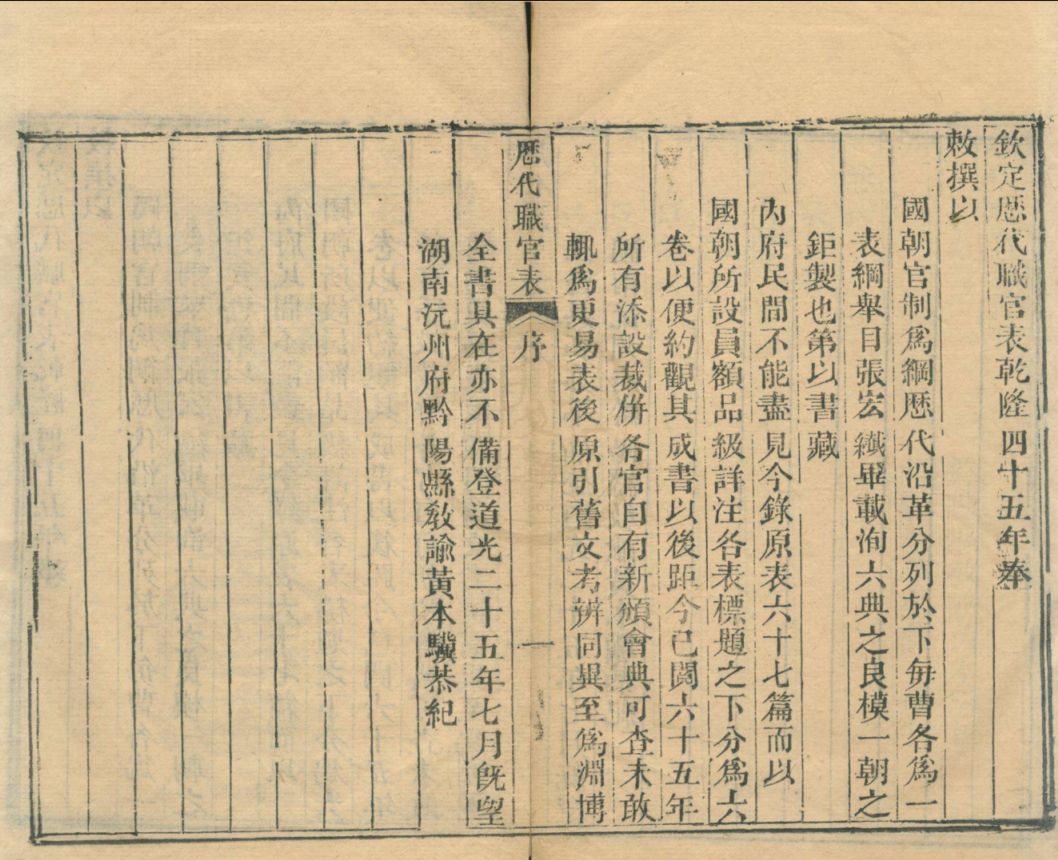 欽定歴代職官表乾隆四十五年奉
敕撰以
國朝官制爲綱歴代沿革分列於下毎曹各爲一
表綱舉目張宏纖畢載洵六典之良模一朝之
鉅製也第以書藏
内府民間不能盡見今錄原表六十七篇而以
國朝所設員額品級詳注各表標題之下分爲六
卷以便約觀其成書以後距今已閱六十五年
所有添設裁併各官自有新頒會典可查未敢
輒爲更易表後原引舊文考辨同異至爲淵博
歴代職官表 序 一
全書具在亦不備登道光二十五年七月旣望
湖南沅州府黔陽縣敎諭黃本驥恭紀